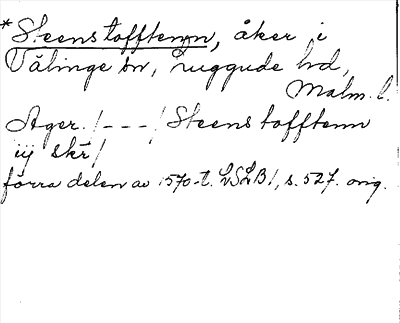 *Steenstofftenn, åker i
Välinge sn, Luggude hd,
Malm. l.
Ager. /---/ Steenstofftenn
iij skr/
förra delen av 1570-t. LSLB1, s. 527. orig.